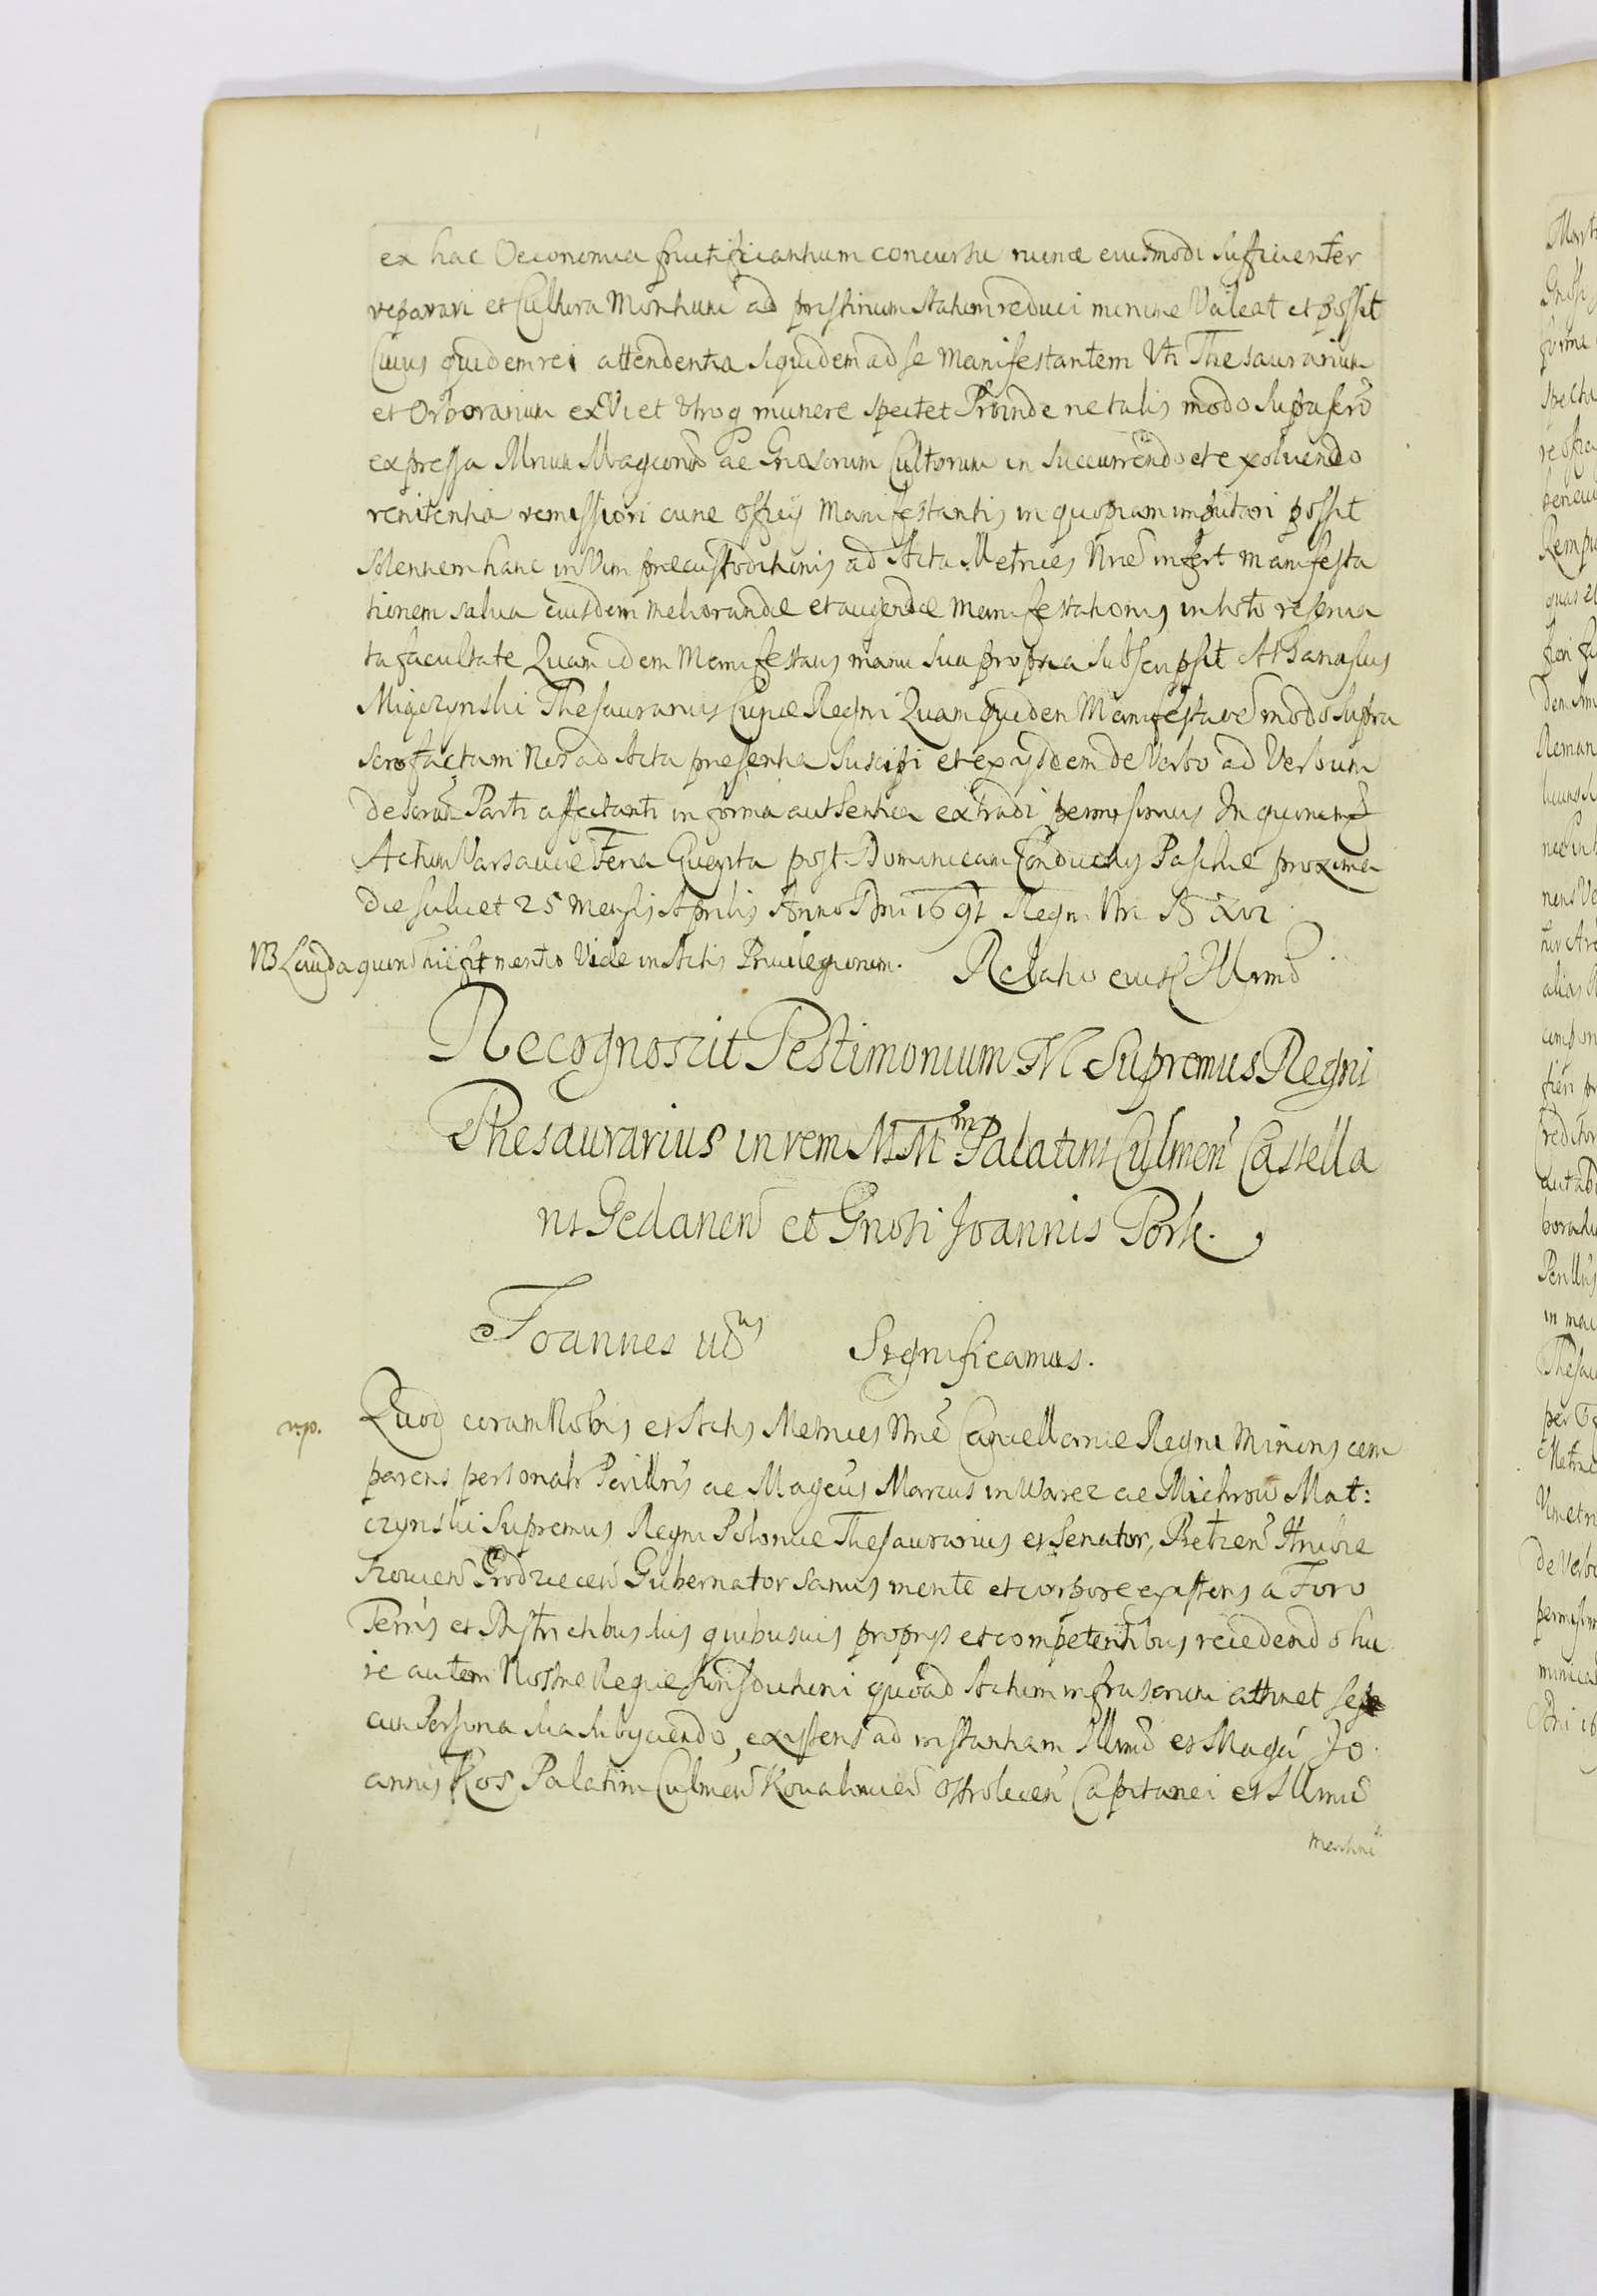 ex hac Oeconomia fructificantium concursu ruinæ eiusmodi sufficienter
reparari et Cultura Montium ad pristinum statum reduci minime Valeat et possit
Cuius quidem rei attendentia siquidem ad se Manifestantem Vti Thesaurarium
et Orborarium ex Vi et Utroq munere spectet Proinde ne talis modo suprascro
expressa Mrium Magcorum ac Gnosorum Cultorum in succurrendo et exoluendo
renitentia remissiori curæ Officij Manifestantis in quopiam imputari possit
Solennem hanc in Vim præcustoditionis ad Acta Metrices Nræ infert manifesta
tionem salua eiusdem meliorandæ et augendæ Manifestationis in toto reserua
ta facultate Quam idem Manifestans manu sua propria subscripsit Athanasius
Miączynski Thesaurarius Curiæ Regni Quam quidem Manifestaoem modo supra
scro factam Nos ad Acta presentia suscipi et ex ijsdem de Verbo ad Verbum
descrun Parti affectanti in forma authentica extradi permisimus In quorum f
Actum Varsauiæ Feria Quarta post Dominicam Conductus Paschæ proxima
die scilicet 25 Mensis Aprilis Anno Dni 1691 Regni Nri A XVI
NB Lauda quorum hic fit mentio Vide in Actis Priuilegiorum. Relatio eiusd Illrmi
Recognoscit Testimonium M Supremus Regni
Thesaurarius in rem M M^m Palatini Culmen Castella
ni Gedanen et Gnosi Joannis Pork.
Joannes 3us Significamus.
n.p. Quod coram Nobis et Actis Metrices Nræ Cancellariæ Regni Minoris com
parens personalr Perillris ac Magcus Marcus in Warez ac Michrow Mat:
czynski Supremus Regni Poloniæ Thesaurarius et Senator, Hrubie
szouien Grodzecen Gubernator sanus mente et corpore existens a Foro
Terris et Districtibus suis quibusuis proprijs et competentibus recedendo hu
ic autem Nostræ Regiæ Jurisdictioni quoad Actum infrascrum attinet sese
cum Persona sua subijciendo, existens ad instantiam Illrmi et Magci Jo
annis Kos Palatini Culmen Kowaleuien Ostrolecen Capitanei et Illrmi
Martini